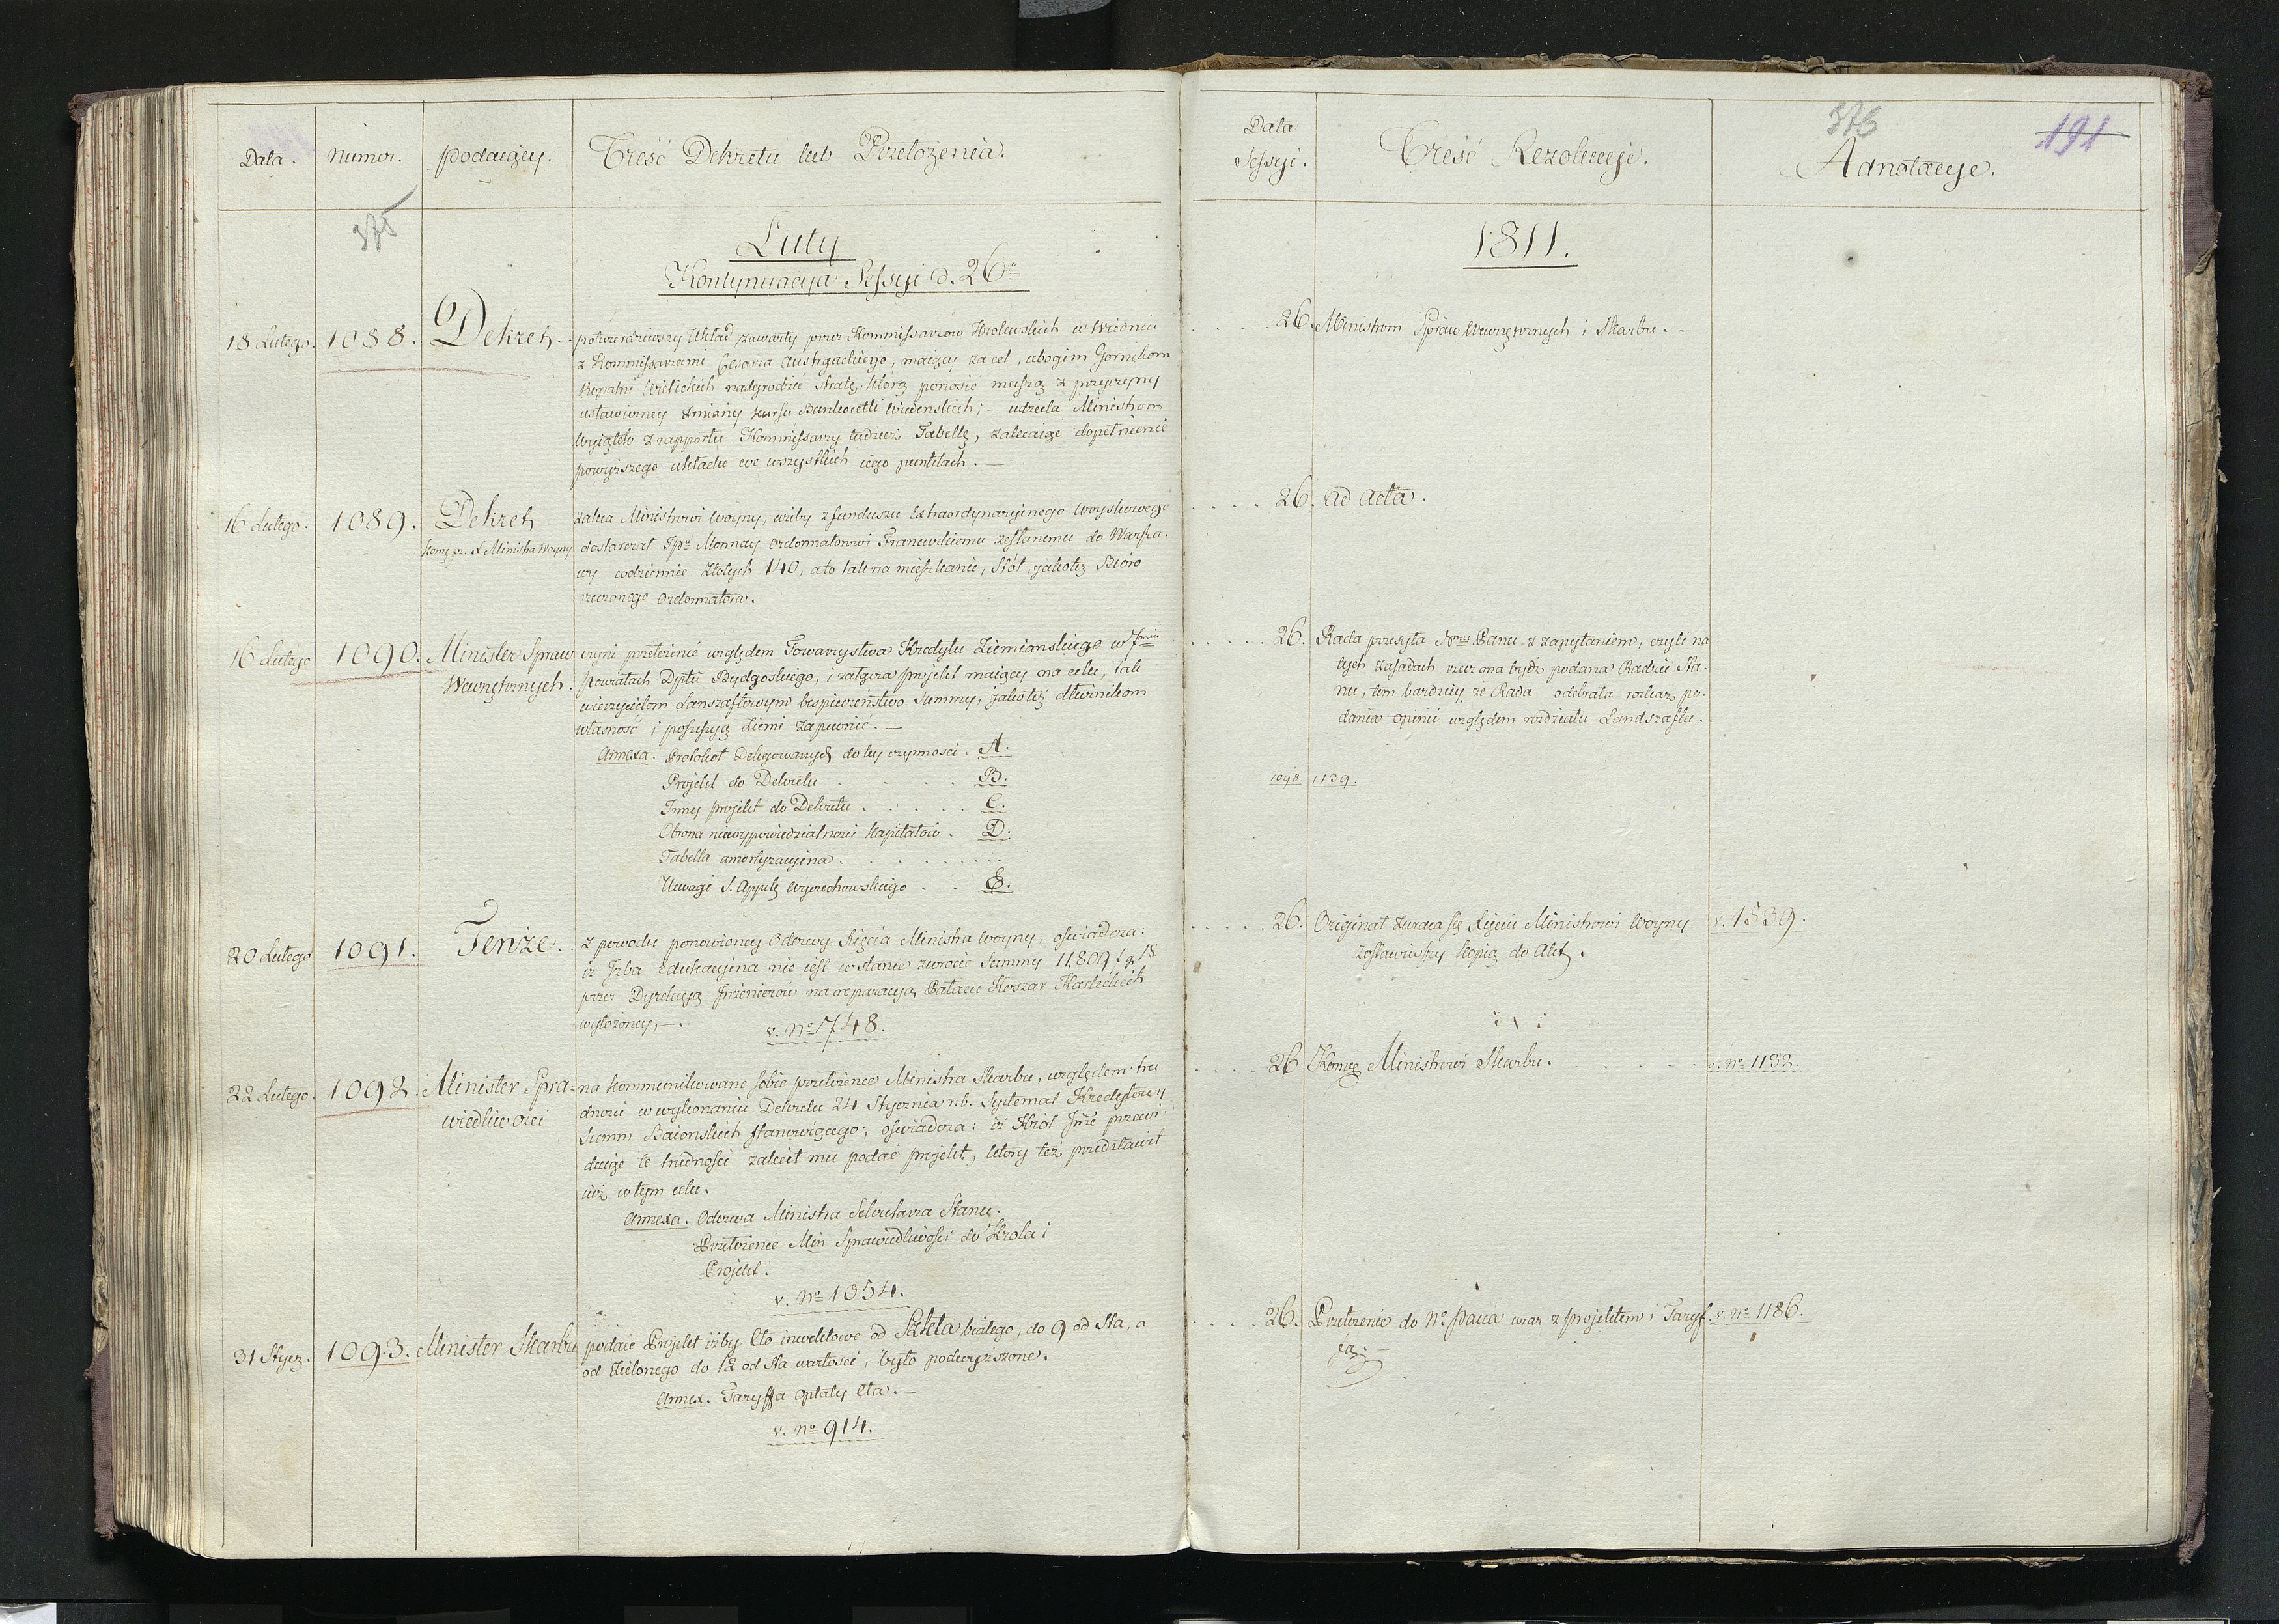 Data.
Numer.
podaiący.
Treść Dekretu lub Przełożenia.
375
Luty
Kontynuacyja Sessyi d. 26o
18 Lutego.
1088.
Dekret.
potwierdzaiący Układ zawarty przez Kommissarzów Królewskich w Wiedniu
z Kommissarzami Cesarza Austryackiego, maiący za cel, ubogim Gornikom
Kopalni Wielickich nadgrodzić stratę, którą ponosić muszą z przyczyny
ustawiczney zmiany kursu Bankocetli Wiedenskich; – udziela Ministrom
Wyiątek z rapportu Kommissarzy tudzież Tabellę, zalecaiąc dopełnienie
powyższego układu we wszystkich iego punktach. –
16 Lutego.
1089.
Dekret
kom. pr. X Ministra Woyny
zaleca Ministrowi Woyny, ażeby z funduszu Extraordynaryinego Woyskowego
dostarczał JPu Monnay Ordonnatorowi Francuzkiemu zesłanemu do Warsza-
wy codziennie Złotych 140, a to tak na mieszkanie, Stół, jakoteż Bióro
rzeczonego Ordonnatora.
16 Lutego
1090.
Minister Spraw
Wewnętrznych.
czyni przełożenie względem Towarzystwa Kredytu Ziemianskiego w 7miu
powiatach Dptu Bydgoskiego, i załącza projekt maiący na celu, tak
wierzycielom Lanszaftowym bespieczeństwo Summy, jakoteż dłużnikom
własność i possessyą Ziemi zapewnić. –
Annexa. Protokół Delegowanych do tey czynnosci. A.
Projekt do Dekretu B.
Inny projekt do Dekretu C.
Obrona niewypowiedzialnosci Kapitałów. D.
Tabella amortyzacyina
Uwagi S. Appel. Wyczechowskiego E.
20 Lutego
1091.
Tenże.
z powodu ponowioney Odezwy Xięcia Ministra Woyny, oświadcza:
iż Izba Edukacyina nie iest w stanie zwrócić Summy 11,809 f. g. 18
przez Dyrekcyą Inżenierów na reparacyą Pałacu Koszar Kadeckich
wyłożoney. –
v. No 1748.
22 Lutego.
1092.
Minister Spra-
wiedliwości
na kommunikowane sobie przełożenie Ministra Skarbu, względem tru
dności w wykonaniu Dekretu 24 Stycznia r. b. Systemat Kredytowy
Summ Baionskich stanowiącego, oświadcza: iż Król Jmć przewi-
duiąc te trudności zalecił mu podać projekt, który też przedstawił
iuż w tym celu.
Annexa. Odezwa Ministra Sekretarza Stanu.
Przełożenie Min Sprawiedliwości do Króla i
Projekt.
v. No 1054.
31 Stycz.
1093.
Minister Skarbu
podaie Projekt iżby Cło inwektowe od Szkła białego, do 9 od Sta, a
od Zielonego do 12 od Sta wartości, było podwyższone.
Annex. Taryffa Opłaty Cła. –
v. No 914.
Data
Sessyi.
Treść Rezolucyi.
376
191
Adnotacye.
1811.
26. Ministrom Spraw Wewnętrznych i Skarbu. –
26. ad acta.
26. Rada przesyła Nmu Panu z zapytaniem, czyli na
tych zasadach rzecz ma bydź podana Radzie Sta-
nu, tem bardziey że Rada odebrała rozkaz po-
dania opinii względem rozdziału Landszaftu.
1098. 1139.
26. Originał zwraca się Xięciu Ministrowi Woyny
zostawiwszy kopią do Akt.
v. 1539.
26 Komq Ministrowi Skarbu.
v. No 1132.
26. Przełożenie do No Pana wraz z projektem i Taryf-
fą. –
v. No 1186.